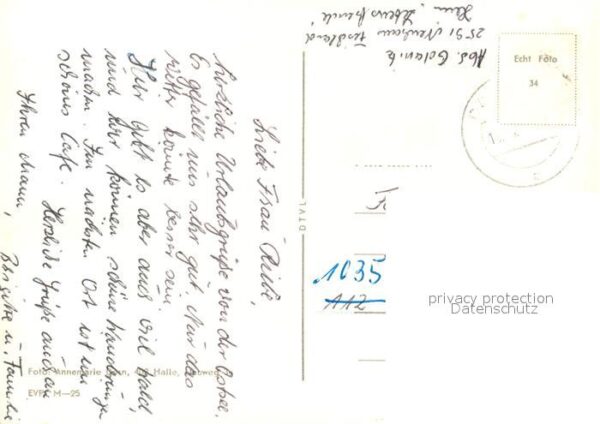 Liebe Frau Reibe,
herzliche Urlaubsgrüße von der Ostsee.
Es gefällt uns sehr gut. Nur das
Wetter könnte besser sein.
Hier gibt es aber auch viel Wald,
und wir können schöne Wanderungen
machen. Im nächsten Ort ist ein
schönes Café. Herzliche Grüße auch an
Ihren Mann,
Brigitte u. Familie
Abs. Golanitz
2591 Neuhaus Fischland
Heim "Lebensfreude"
Echt Foto
34
DTVL
1035
A12
privacy protection
Datenschutz
Foto: Annemarie Halle,
EVP M—25